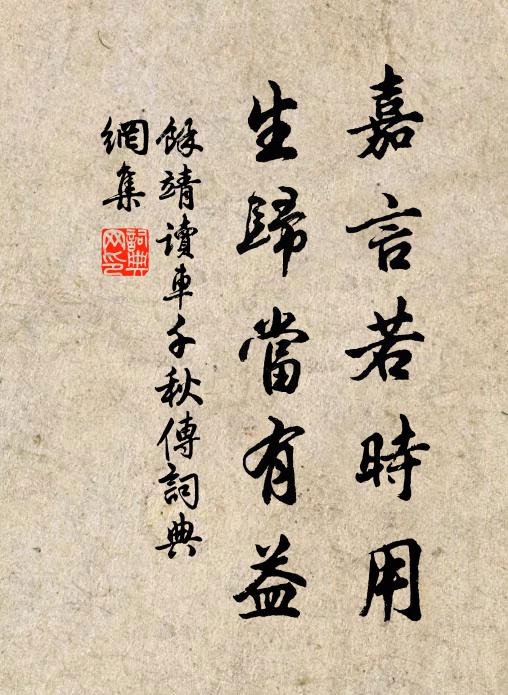 嘉言若時用
生歸當有益
餘靖讀車千秋傳詞典
網集
詞典網印